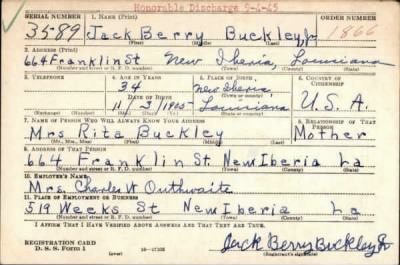 Honorable Discharge 9-4-45
SERIAL NUMBER 1. NAME (Print)
3589 Jack Berry Buckley Jr 1866
(First) (Middle) (Last)
2. ADDRESS (Print)
664 Franklin St New Iberia, Louisiana
(Number and street or R. F. D. number) (Town) (County) (State)
3. TELEPHONE 4. AGE IN YEARS 5. PLACE OF BIRTH 6. COUNTRY OF CITIZENSHIP
34 New Iberia,
DATE OF BIRTH (Town or county)
11/3/1905 Louisiana U.S.A.
(Exchange) (Number) (Mo.) (Day) (Yr.) (State or country)
7. NAME OF PERSON WHO WILL ALWAYS KNOW YOUR ADDRESS 8. RELATIONSHIP OF THAT PERSON
Mrs Rita Buckley Mother
(Mr., Mrs., Miss) (First) (Middle) (Last)
9. ADDRESS OF THAT PERSON
664 Franklin St New Iberia La
(Number and street or R. F. D. number) (Town) (County) (State)
10. EMPLOYER'S NAME
Mrs. Charles W Outhwaite
11. PLACE OF EMPLOYMENT OR BUSINESS
519 Weeks St New Iberia La
(Number and street or R. F. D. number) (Town) (County) (State)
I AFFIRM THAT I HAVE VERIFIED ABOVE ANSWERS AND THAT THEY ARE TRUE.
REGISTRATION CARD
D. S. S. Form 1 (over) Jack Berry Buckley Jr
(Registrant's signature)